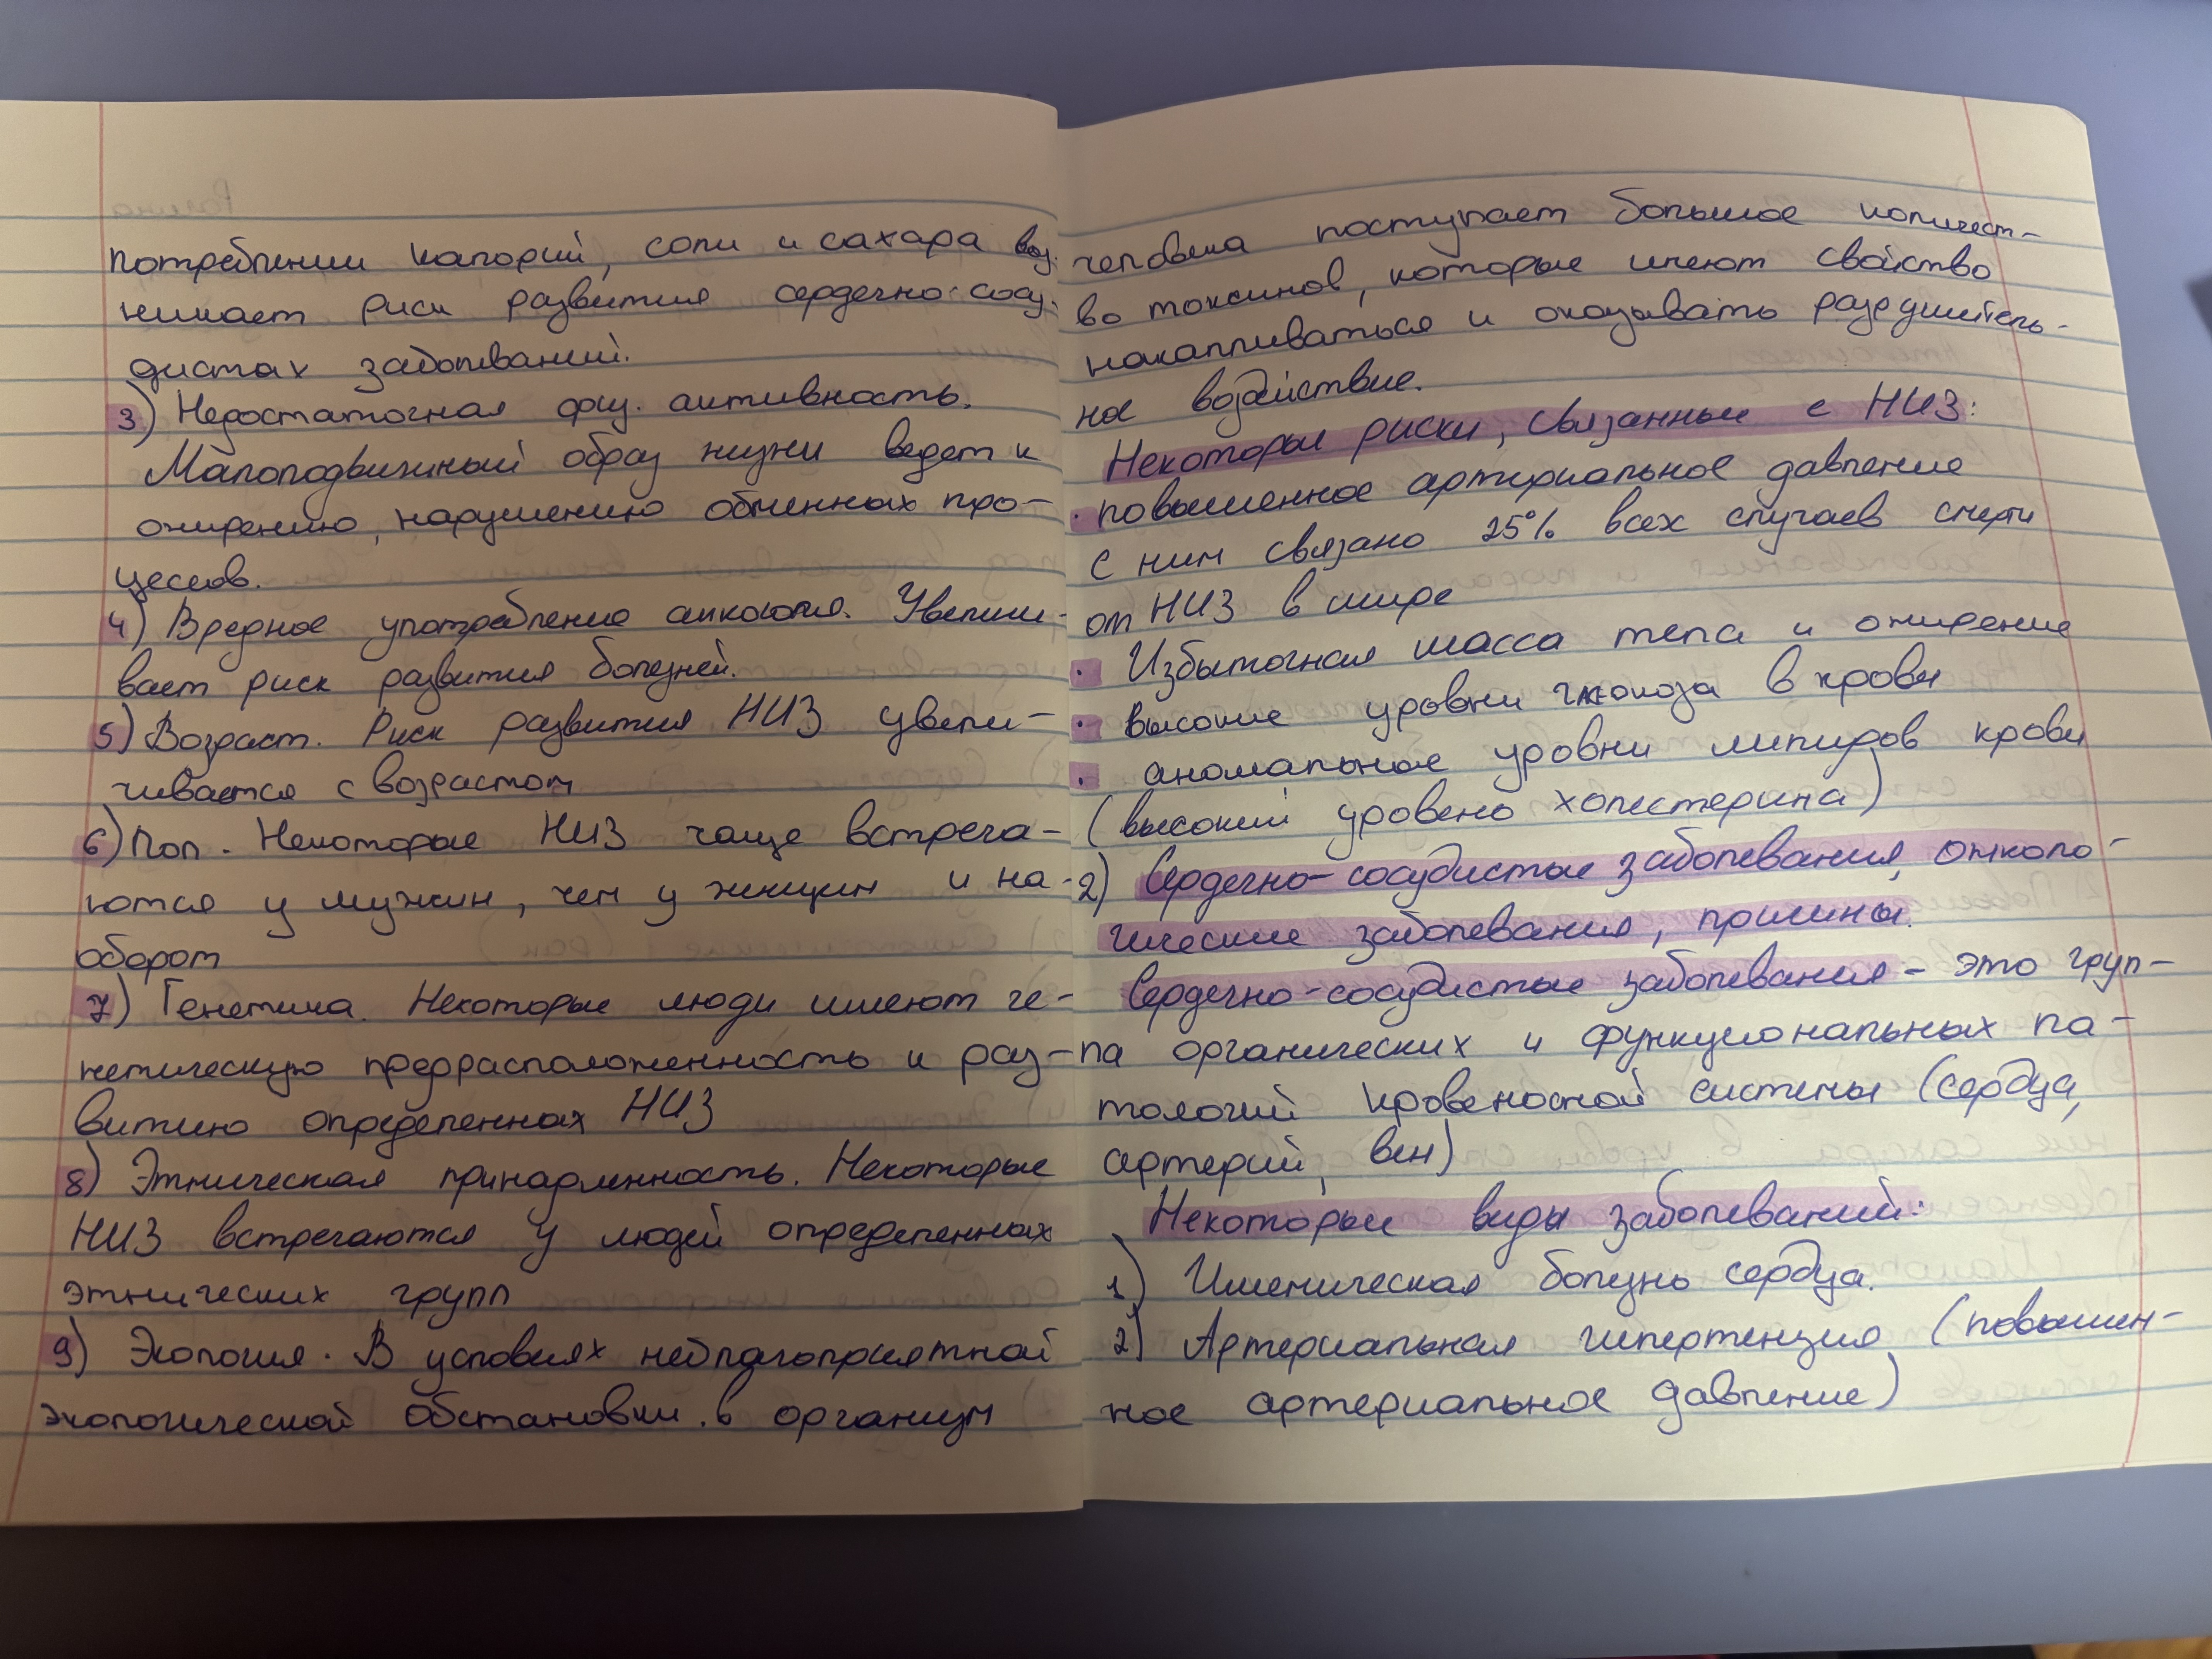 потреблении калорий, соли и сахара воз-
никает риск развития сердечно-сосу-
дистах заболеваний.
3) Недостаточная физ. активность.
Малоподвижный образ жизни ведет к
ожирению, нарушению обменных про-
цессов.
4) Вредное употребление алкоголя. Увеличи-
вает риск развития болезней.
5) Возраст. Риск развития НИЗ увели-
чивается с возрастом
6) Пол. Некоторые НИЗ чаще встреча-
ются у мужчин, чем у женщин и на-
оборот
7) Генетика. Некоторые люди имеют ге-
нетическую предрасположенность к раз-
витию определенных НИЗ
8) Этническая принадленность. Некоторые
НИЗ встречаются у людей определенных
этнических групп
9) Экология. В условиях неблагоприятной
экологической обстановки в организм
человека поступает большое количест-
во токсинов, которые имеют свойство
накапливаться и оказывать разрушитель-
ное воздействие.
Некоторые риски, связанные с НИЗ:
· повышенное артериальное давление
с ним связано 25% всех случаев смерти
от НИЗ в мире
· Избыточная масса тела и ожирение
· высокие уровни глюкоза в крови
· аномальное уровни липидов крови
(высокий уровень холестерина)
2) Сердечно-сосудистые заболевания, онколо-
гические заболевания, причины.
Сердечно-сосудистые заболевания - это груп-
па органических и функциональных па-
тологий кровеносной системы (сердца,
артерий, вен)
Некоторые виды заболеваний:
1) Ишемическая болезнь сердца.
2) Артериальная гипертензия (повышен-
ное артериальное давление)